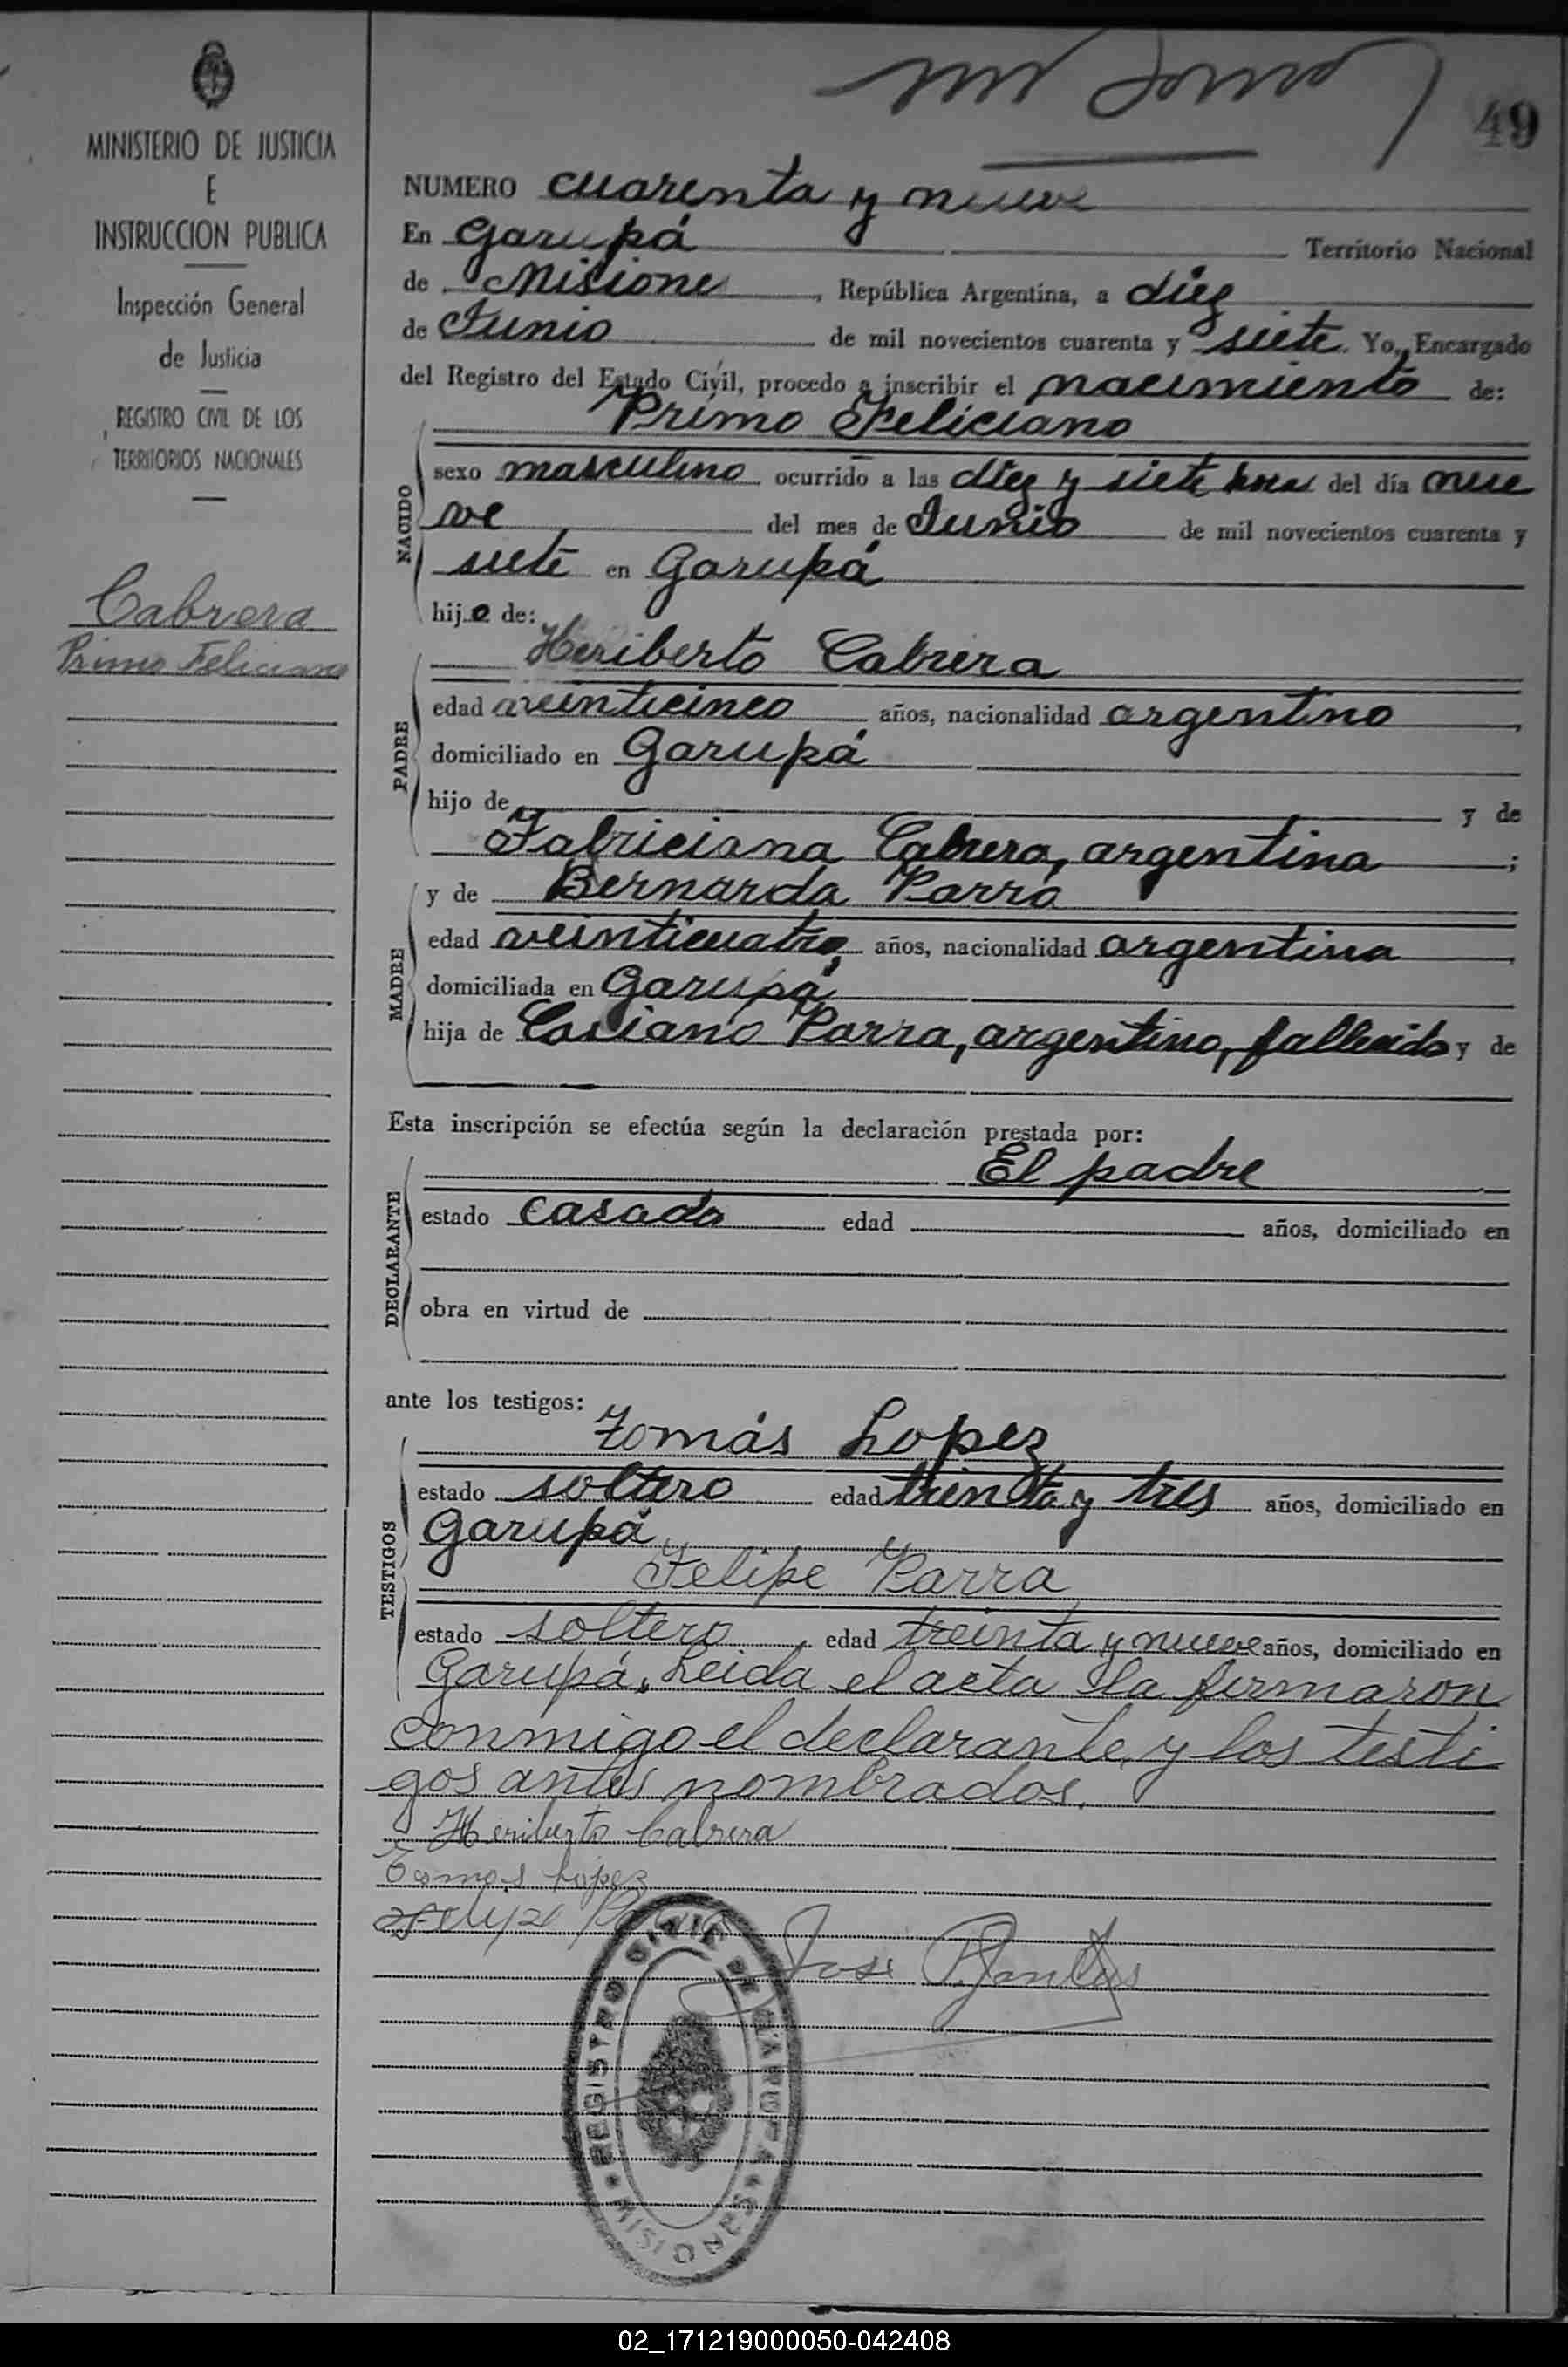 49
MINISTERIO DE JUSTICIA
E
INSTRUCCION PUBLICA
Inspección General
de Justicia
REGISTRO CIVIL DE LOS
TERRITORIOS NACIONALES
Cabrera
Primo Feliciano
NUMERO cuarenta y nueve
En Garupá Territorio Nacional
de Misione, República Argentina, a diez
de Junio de mil novecientos cuarenta y siete. Yo, Encargado
del Registro del Estado Civil, procedo a inscribir el nacimiento de:
Primo Feliciano
NACIDO
sexo masculino ocurrido a las diez y siete horas del día nue
ve del mes de Junio de mil novecientos cuarenta y
siete en Garupá
hijo de:
Heriberto Cabrera
PADRE
edad veinticinco años, nacionalidad argentino,
domiciliado en Garupá
hijo de y de
Fabriciana Cabrera, argentina;
y de Bernarda Parra
MADRE
edad veinticuatro, años, nacionalidad argentina,
domiciliada en Garupá
hija de Casiano Parra, argentino, fallecido y de
Esta inscripción se efectúa según la declaración prestada por:
El padre
DECLARANTE
estado casado edad años, domiciliado en
obra en virtud de
ante los testigos:
Tomás Lopez
TESTIGOS
estado soltero edad treinta y tres años, domiciliado en
Garupá
Felipe Parra
estado soltero, edad treinta y nueve años, domiciliado en
Garupá. Leida el acta la firmaron
conmigo el declarante, y los testi
gos antes nombrados.
Heriberto Cabrera
Tomas Lopez
Felipe
Jose
REGISTRO CIVIL DE GARUPA
MISIONES
02_171219000050-042408